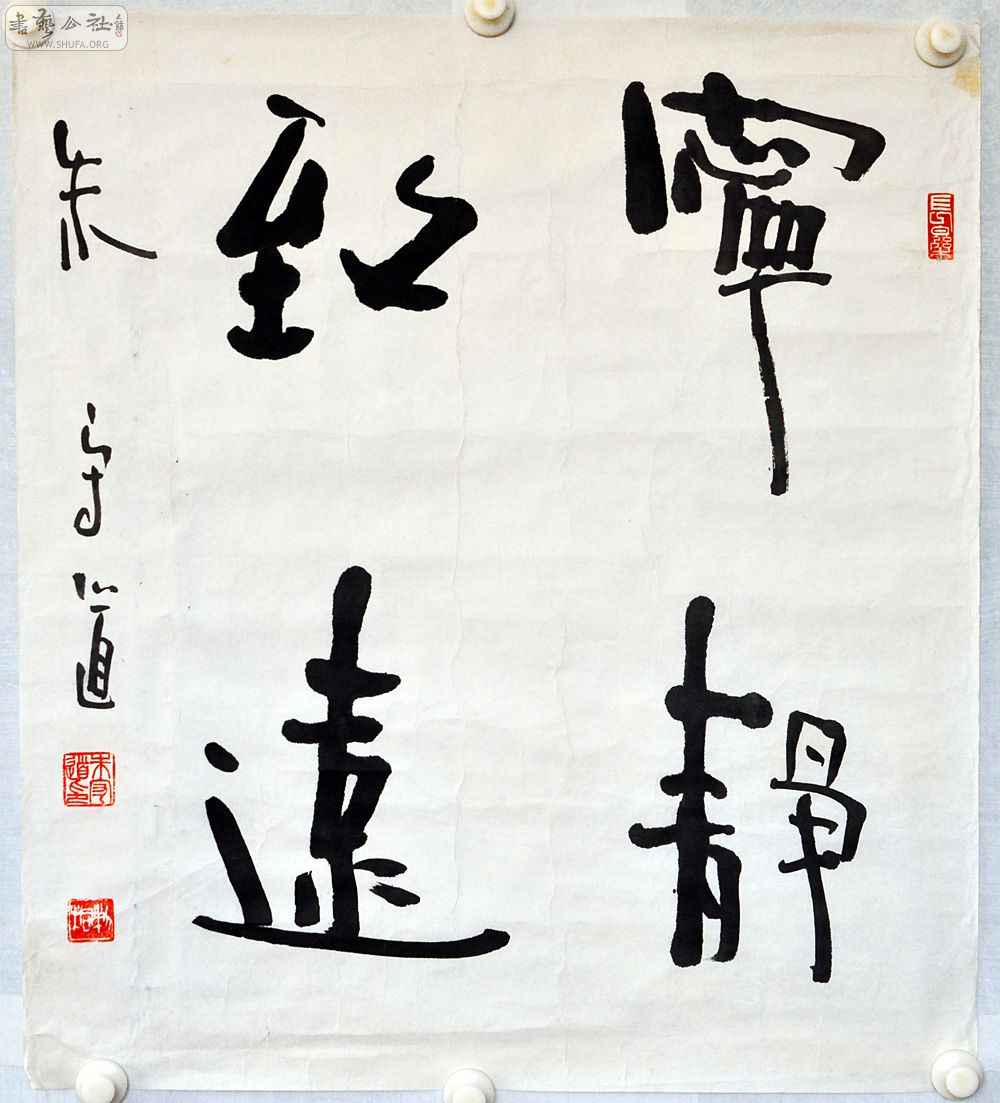 寧靜
致遠
朱守道
書藝公社
WWW.SHUFA.ORG